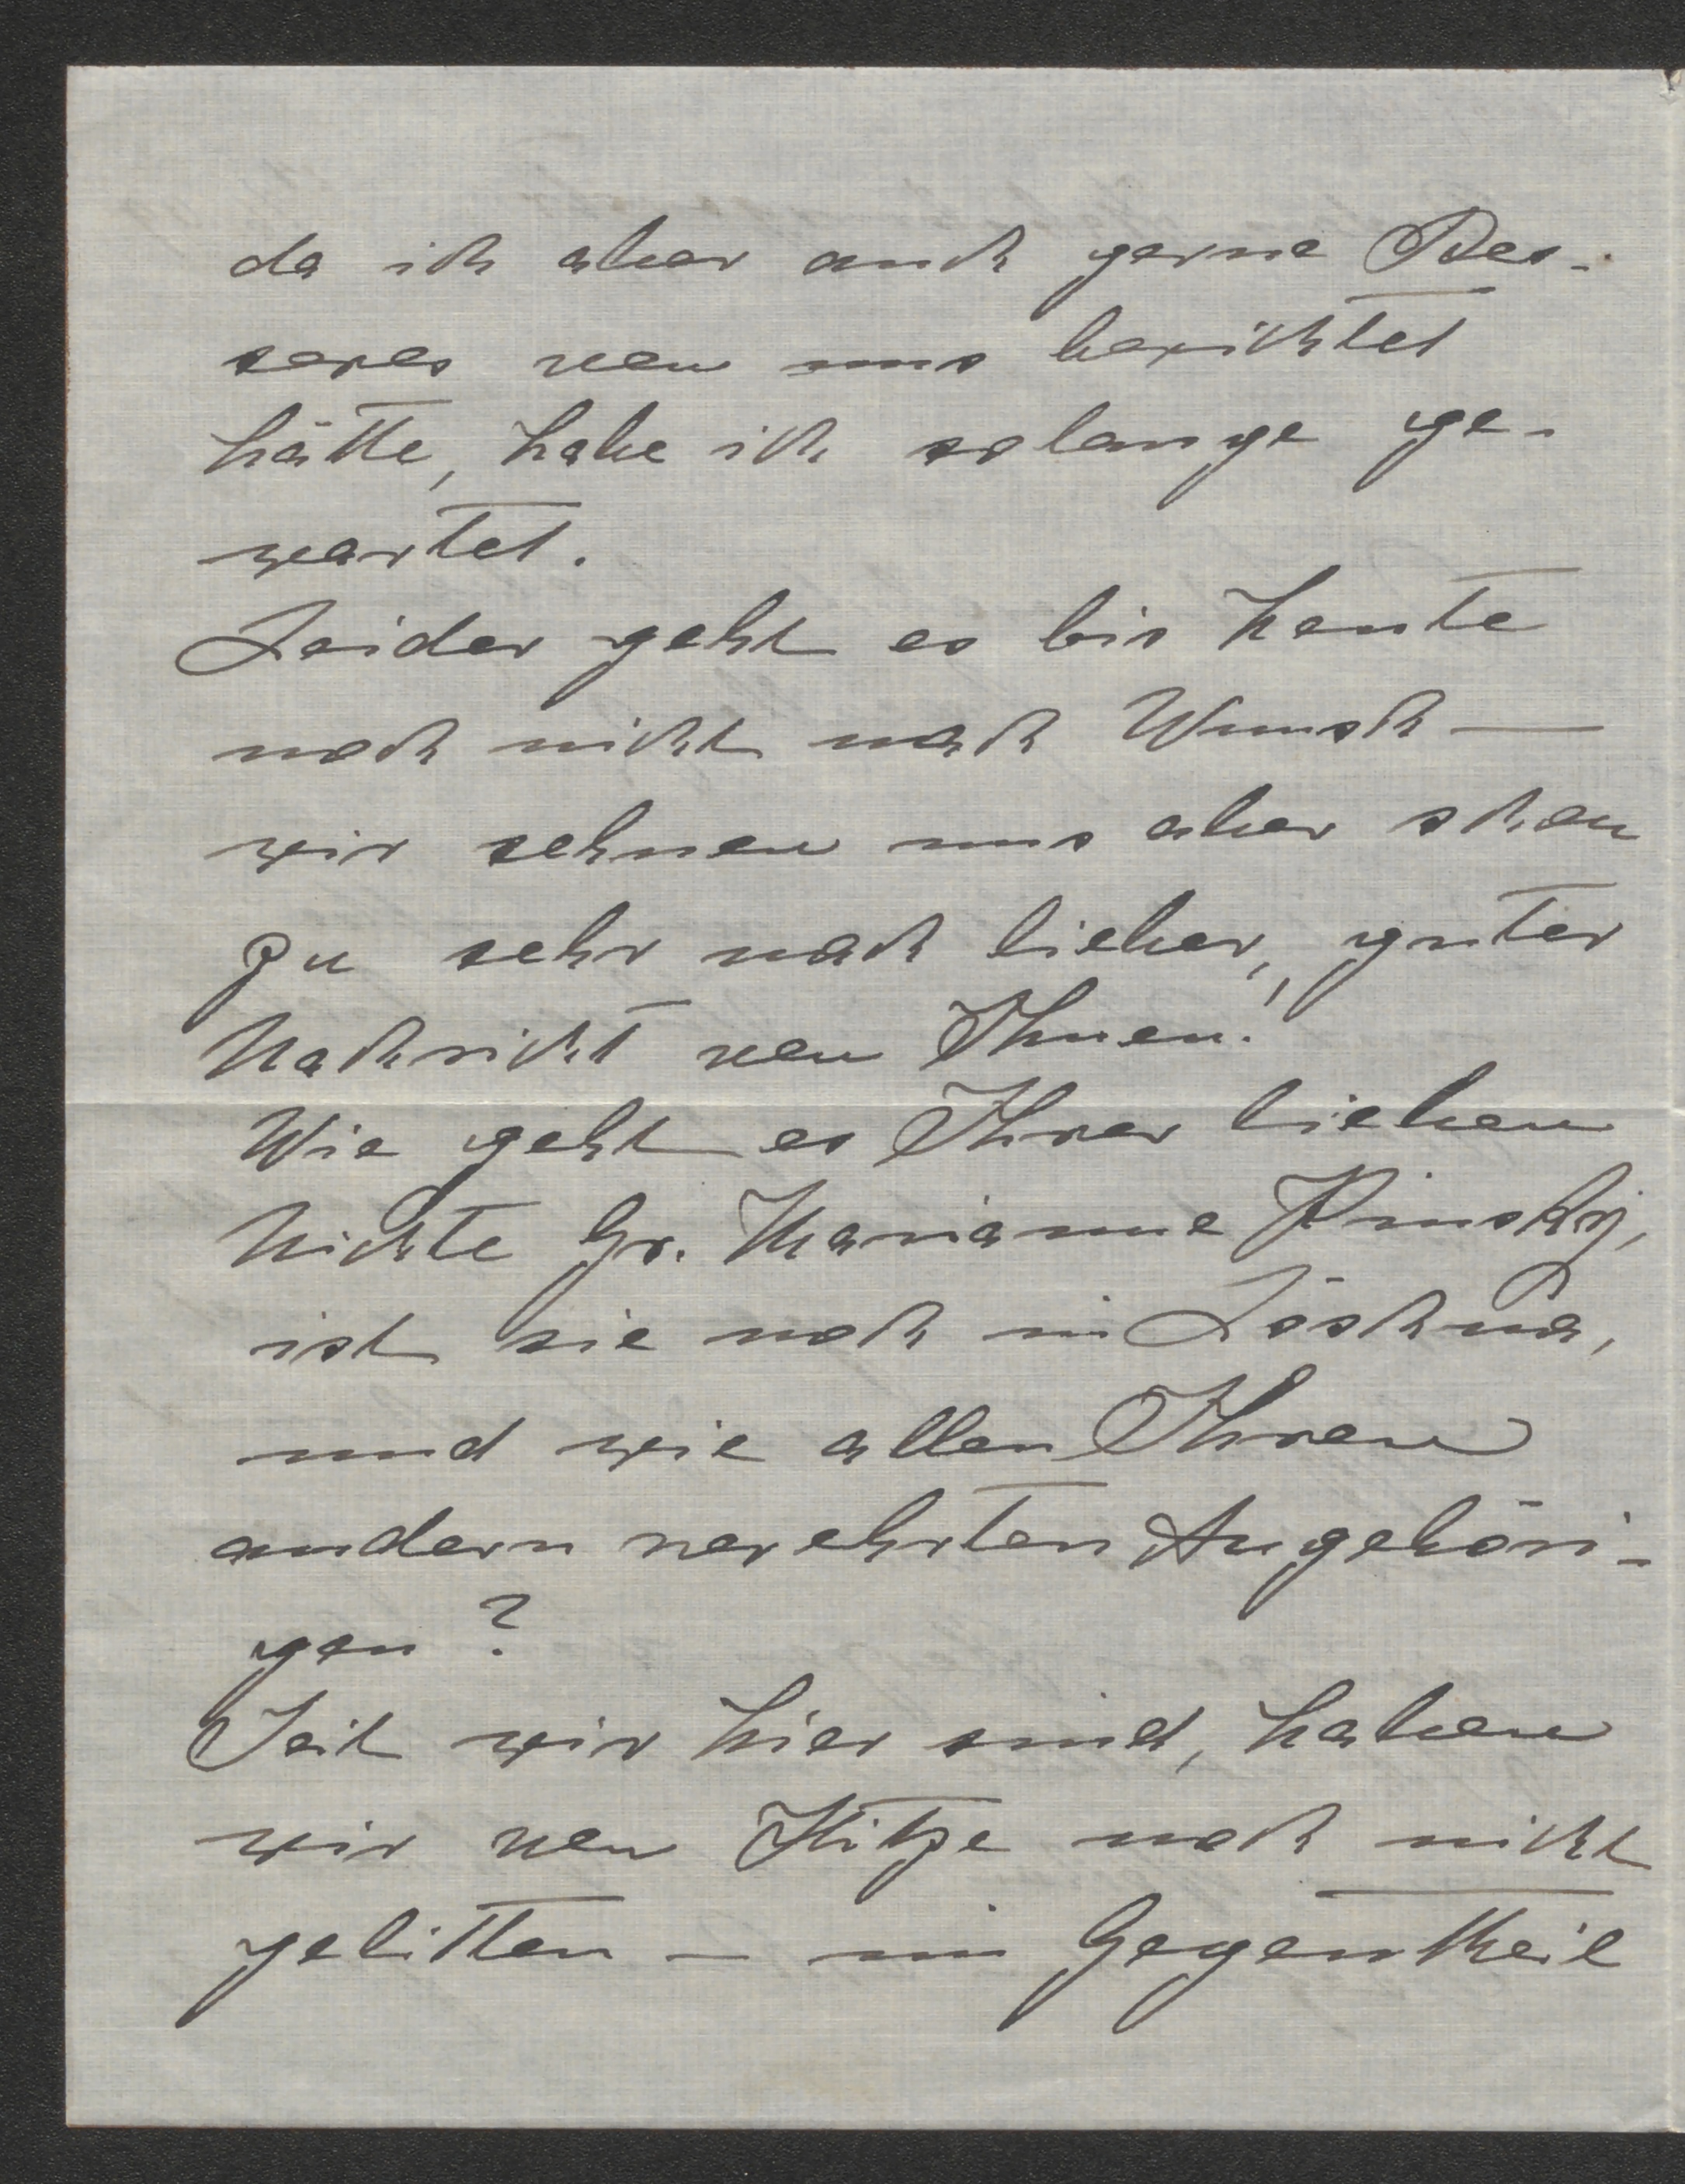 da ich aber auch gerne Bes-
seres von uns berichtet
hätte, habe ich solange ge-
wartet.
Leider geht es bis heute
noch nicht nach Wunsch —
wir sehnen uns aber schon
zu sehr nach lieber, guter
Nachricht von Ihnen!
Wie geht es Ihrer lieben
Nichte Gr. Marianne Kinsky,
ist sie noch in Löschna,
und wie allen Ihren
andern verehrten Angehöri-
gen?
Seit wir hier sind, haben
wir von Hitze noch nicht
gelitten — im Gegentheil